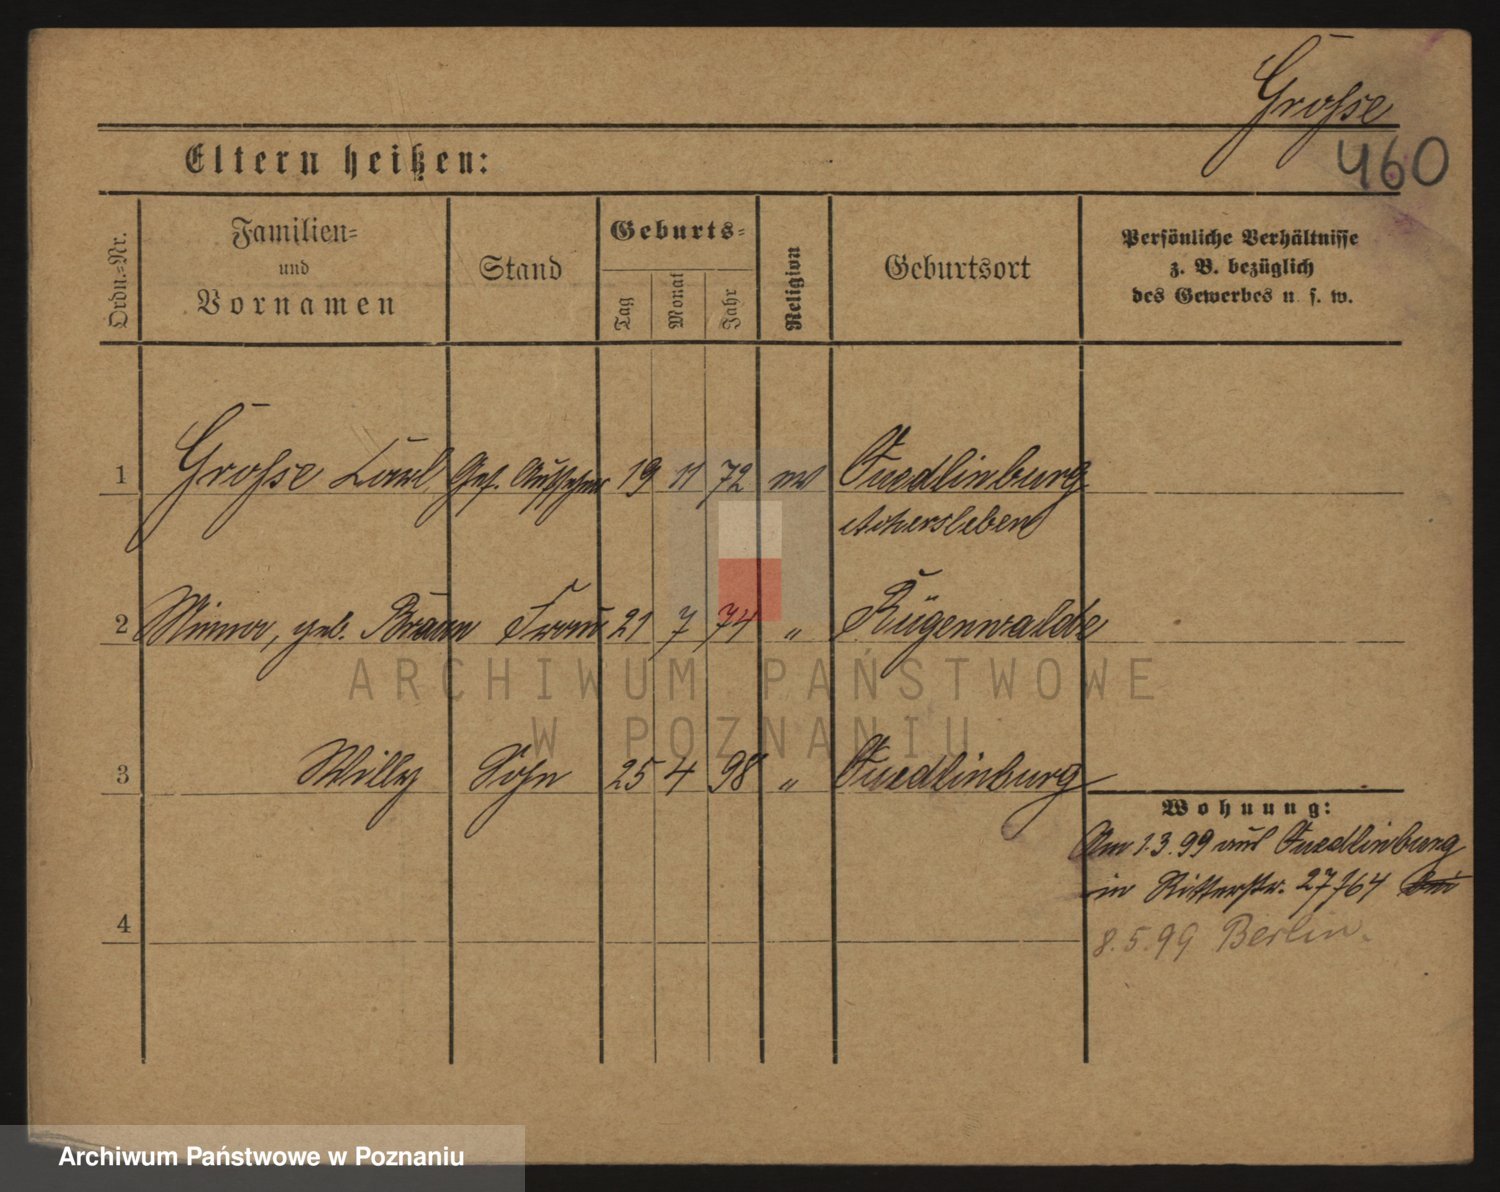 Grosse
460
Eltern heißen:
Ordn.-Nr.
Familien-
und
Vornamen
Stand
Geburts-
Tag
Monat
Jahr
Religion
Geburtsort
Persönliche Verhältnisse
z. B. bezüglich
des Gewerbes u. s. w.
1 Grosse Carl Gef. Aufseher 19 11 72 ev Quedlinburg
Aschersleben
2 Minna, geb. Braun Frau 21 7 74 " Rügenwalde
ARCHIWUM PAŃSTWOWE
W POZNANIU
3 Willy Sohn 25 4 98 " Quedlinburg
Wohnung:
Am 1.3.99 aus Quedlinburg
in Ritterstr. 27/64
4
8.5.99 Berlin.
Archiwum Państwowe w Poznaniu